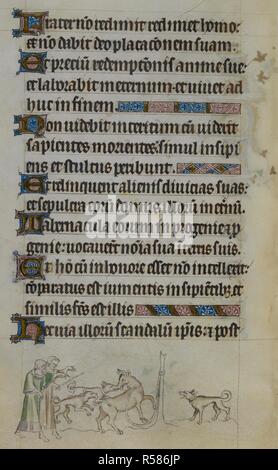 Frater nō redimit redimet homo:
et nō dabit deo placacōnem suam.
Et preciū redempcōnis anime sue:
et laborabit in eternum et uiuet ad
huc in finem.
Non uidebit interitum cū uiderit
sapientes morientes: simul insipi
ens et stultus peribunt.
Et relinquent alienis diuicias suas:
et sepulcra eorū domus illorū in et̄nū.
Tabernacula eorum in progenie et p̄
genie: uocauerūt noīa sua in terris suis.
Et hō cū in honore esset nō intellexit:
cōparatus est iumentis insipientib; et
similis fc̄s est illis
Hec uia illorū scandalū ip̄is: et post
alamy
Image ID: R586JP
www.alamy.com